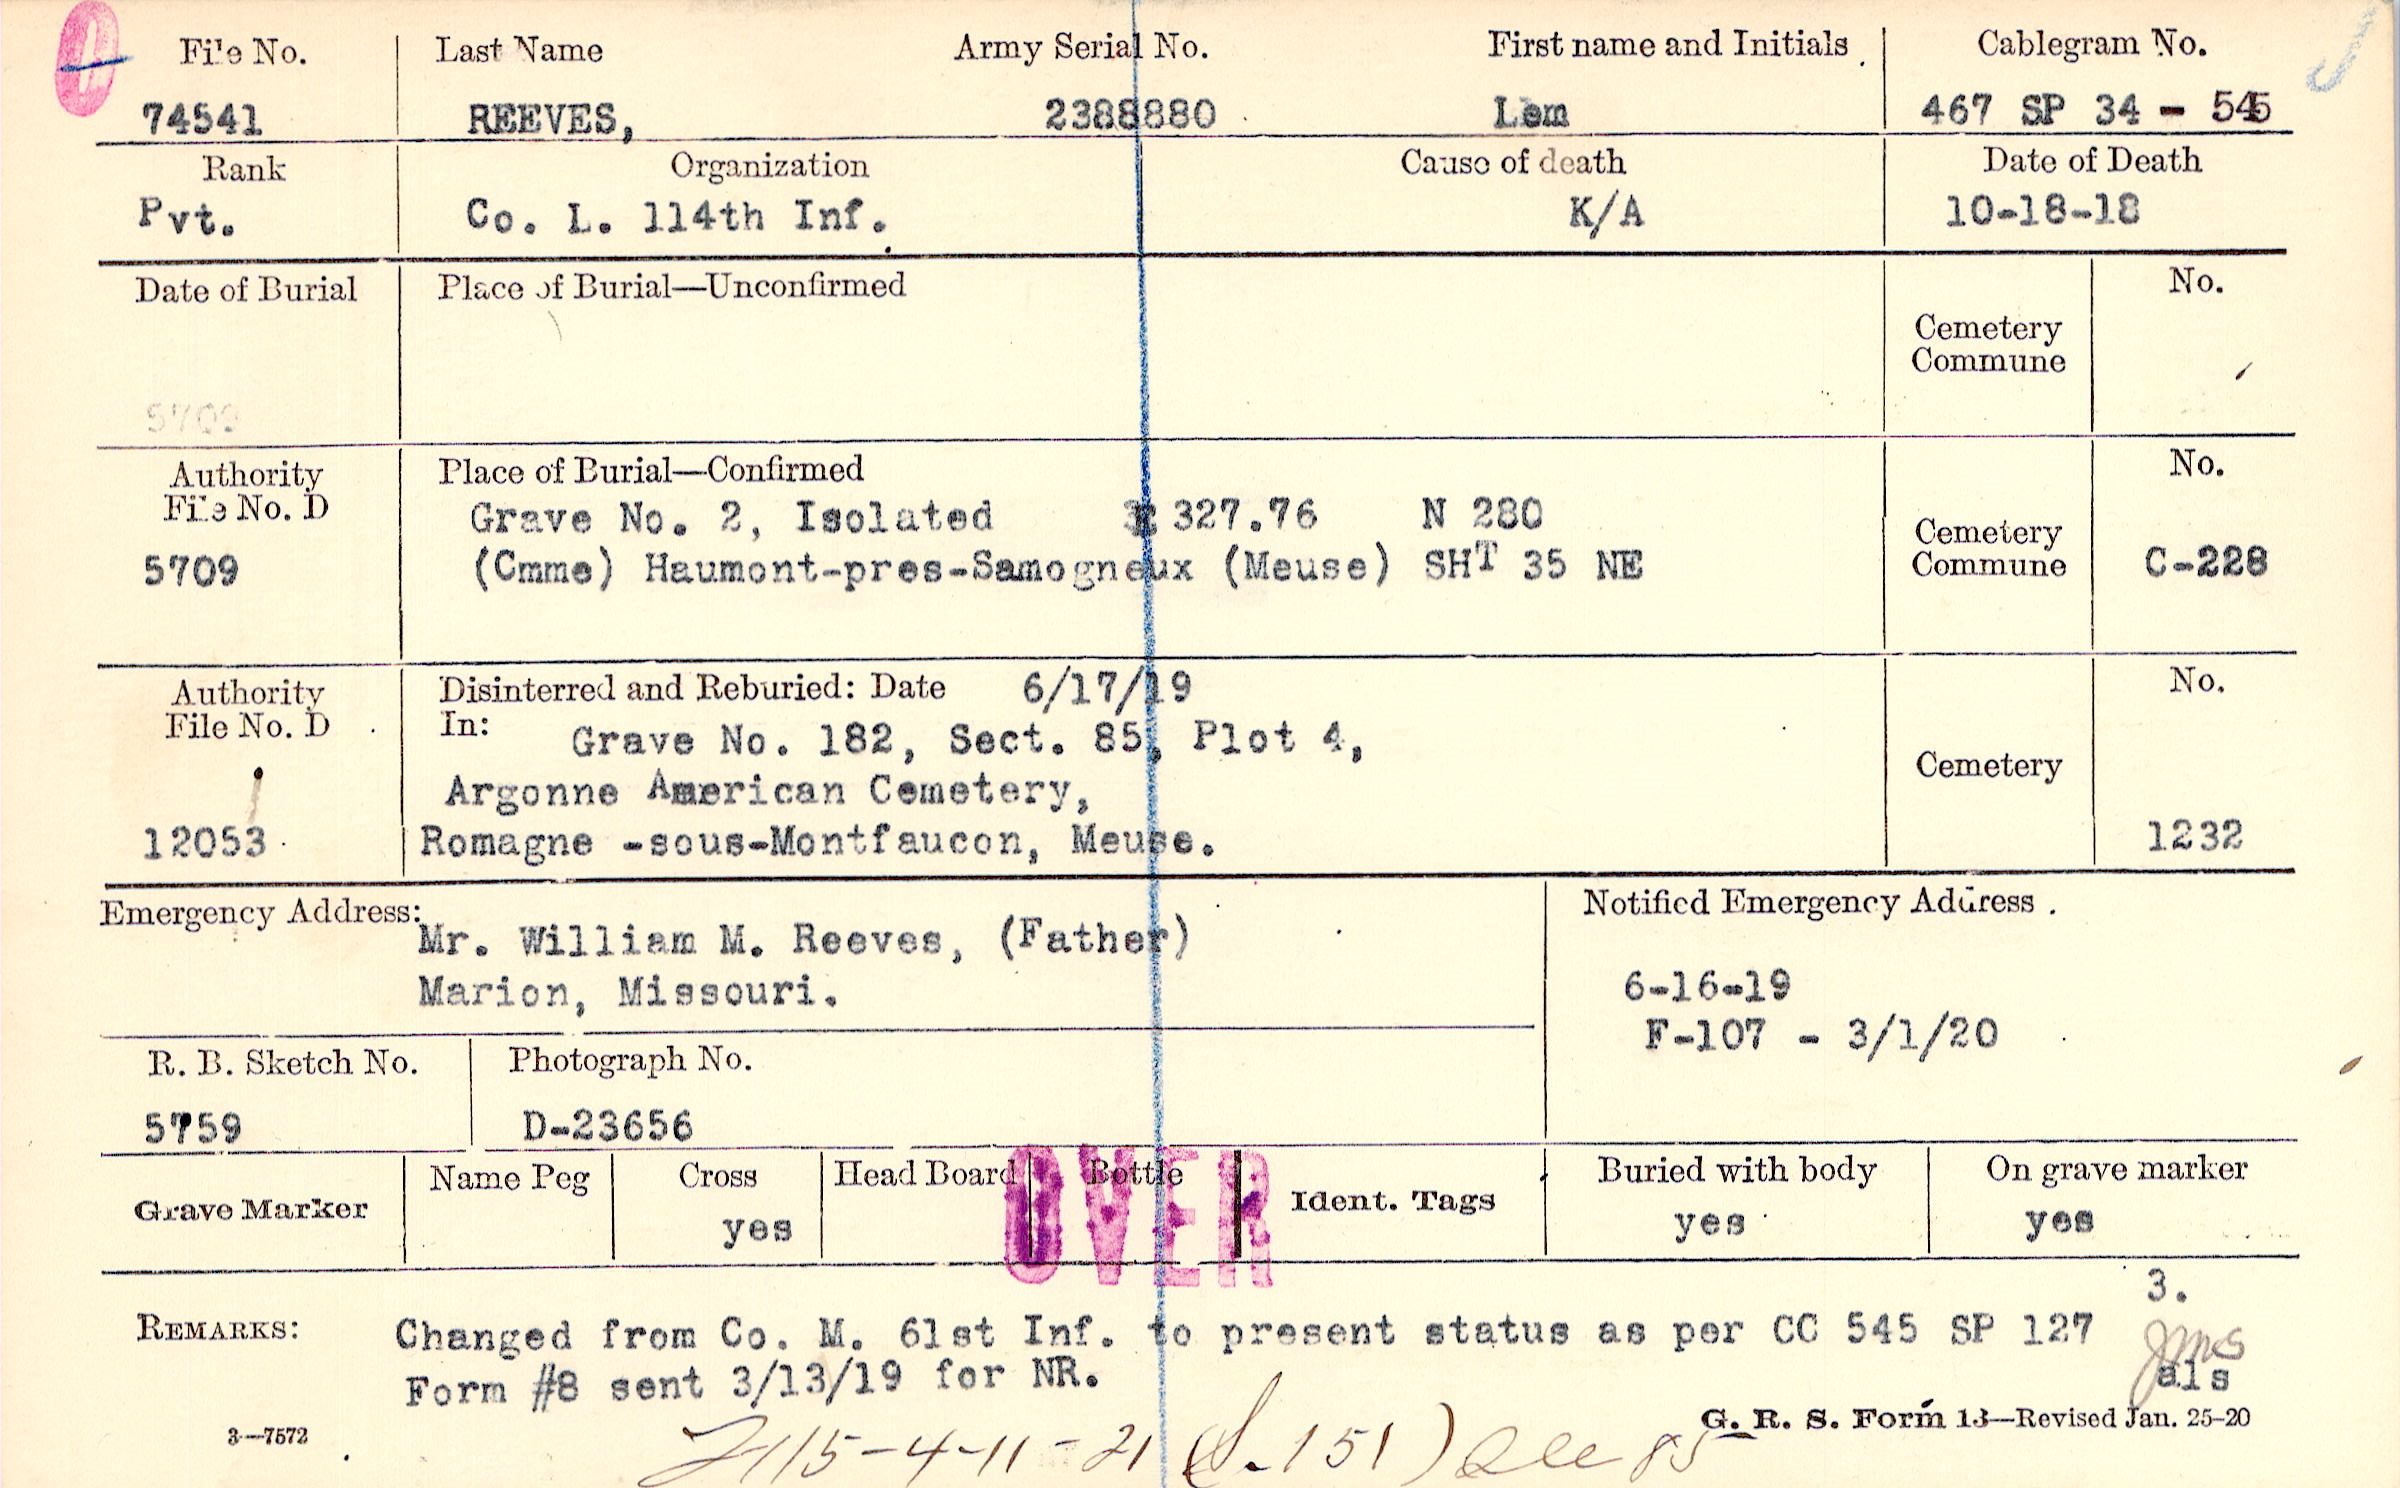 File No. Last Name Army Serial No. First name and Initials Cablegram No.
74541 REEVES, 2388880 Lem 467 SP 34 - 545
Rank Organization Cause of death Date of Death
Pvt. Co. L. 114th Inf. K/A 10-18-18
Date of Burial Place of Burial—Unconfirmed No.
Cemetery
Commune
5709
Authority Place of Burial—Confirmed No.
File No. D Grave No. 2, Isolated 327.76 N 280 Cemetery
5709 (Cmme) Haumont-pres-Samogneux (Meuse) SHT 35 NE Commune C-228
Authority Disinterred and Reburied: Date 6/17/19 No.
File No. D In: Grave No. 182, Sect. 85, Plot 4,
Argonne American Cemetery, Cemetery
12053 Romagne -sous-Montfaucon, Meuse. 1232
Emergency Address: Notified Emergency Address
Mr. William M. Reeves, (Father)
Marion, Missouri. 6-16-19
F-107 - 3/1/20
R. B. Sketch No. Photograph No.
5759 D-23656
Grave Marker Name Peg Cross Head Board Bottle Ident. Tags Buried with body On grave marker
yes yes yes
OVER
3.
REMARKS: Changed from Co. M. 61st Inf. to present status as per CC 545 SP 127
Form #8 sent 3/13/19 for NR. als
G. R. S. Form 13—Revised Jan. 25-20
3—7572